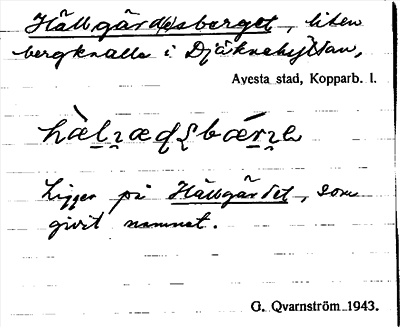 Hällgärd(e)sberget, liten
bergknalle i Djäknehyttan,
Avesta stad, Kopparb. l.
Ligger på Hällgärdet, som
givit namnet.
G. Qvarnström 1943.